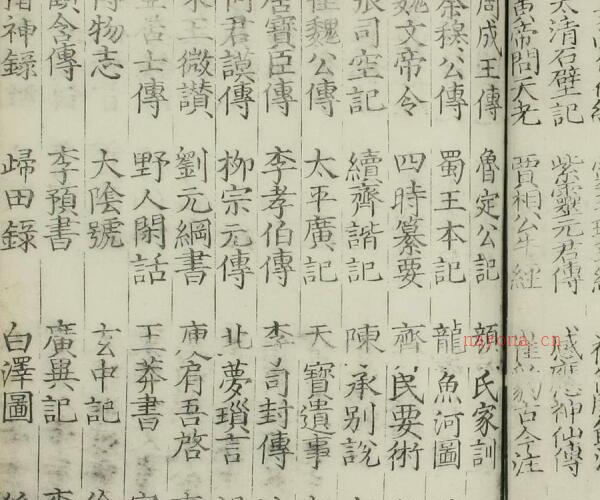 太清石壁記 紫靈元君傳 感應神仙傳
黃帝問天老 賈相公牛經 崔豹古今注
周成王傳 魯定公記 顏氏家訓
秦穆公傳 蜀王本記 龍魚河圖
魏文帝令 四時纂要 齊民要術
張司空記 續齊諧記 陳承別說
崔魏公傳 太平廣記 天寶遺事
李寶臣傳 李孝伯傳 李司封傳
何君謨傳 柳宗元傳 北夢瑣言
宋王微讃 劉元綱書 庾肩吾啓
居士傳 野人閑話 王莽書
博物志 大陰號 玄中記
顧含傳 李預書 廣異記
搢神錄 歸田錄 白澤圖
nsrona.cn